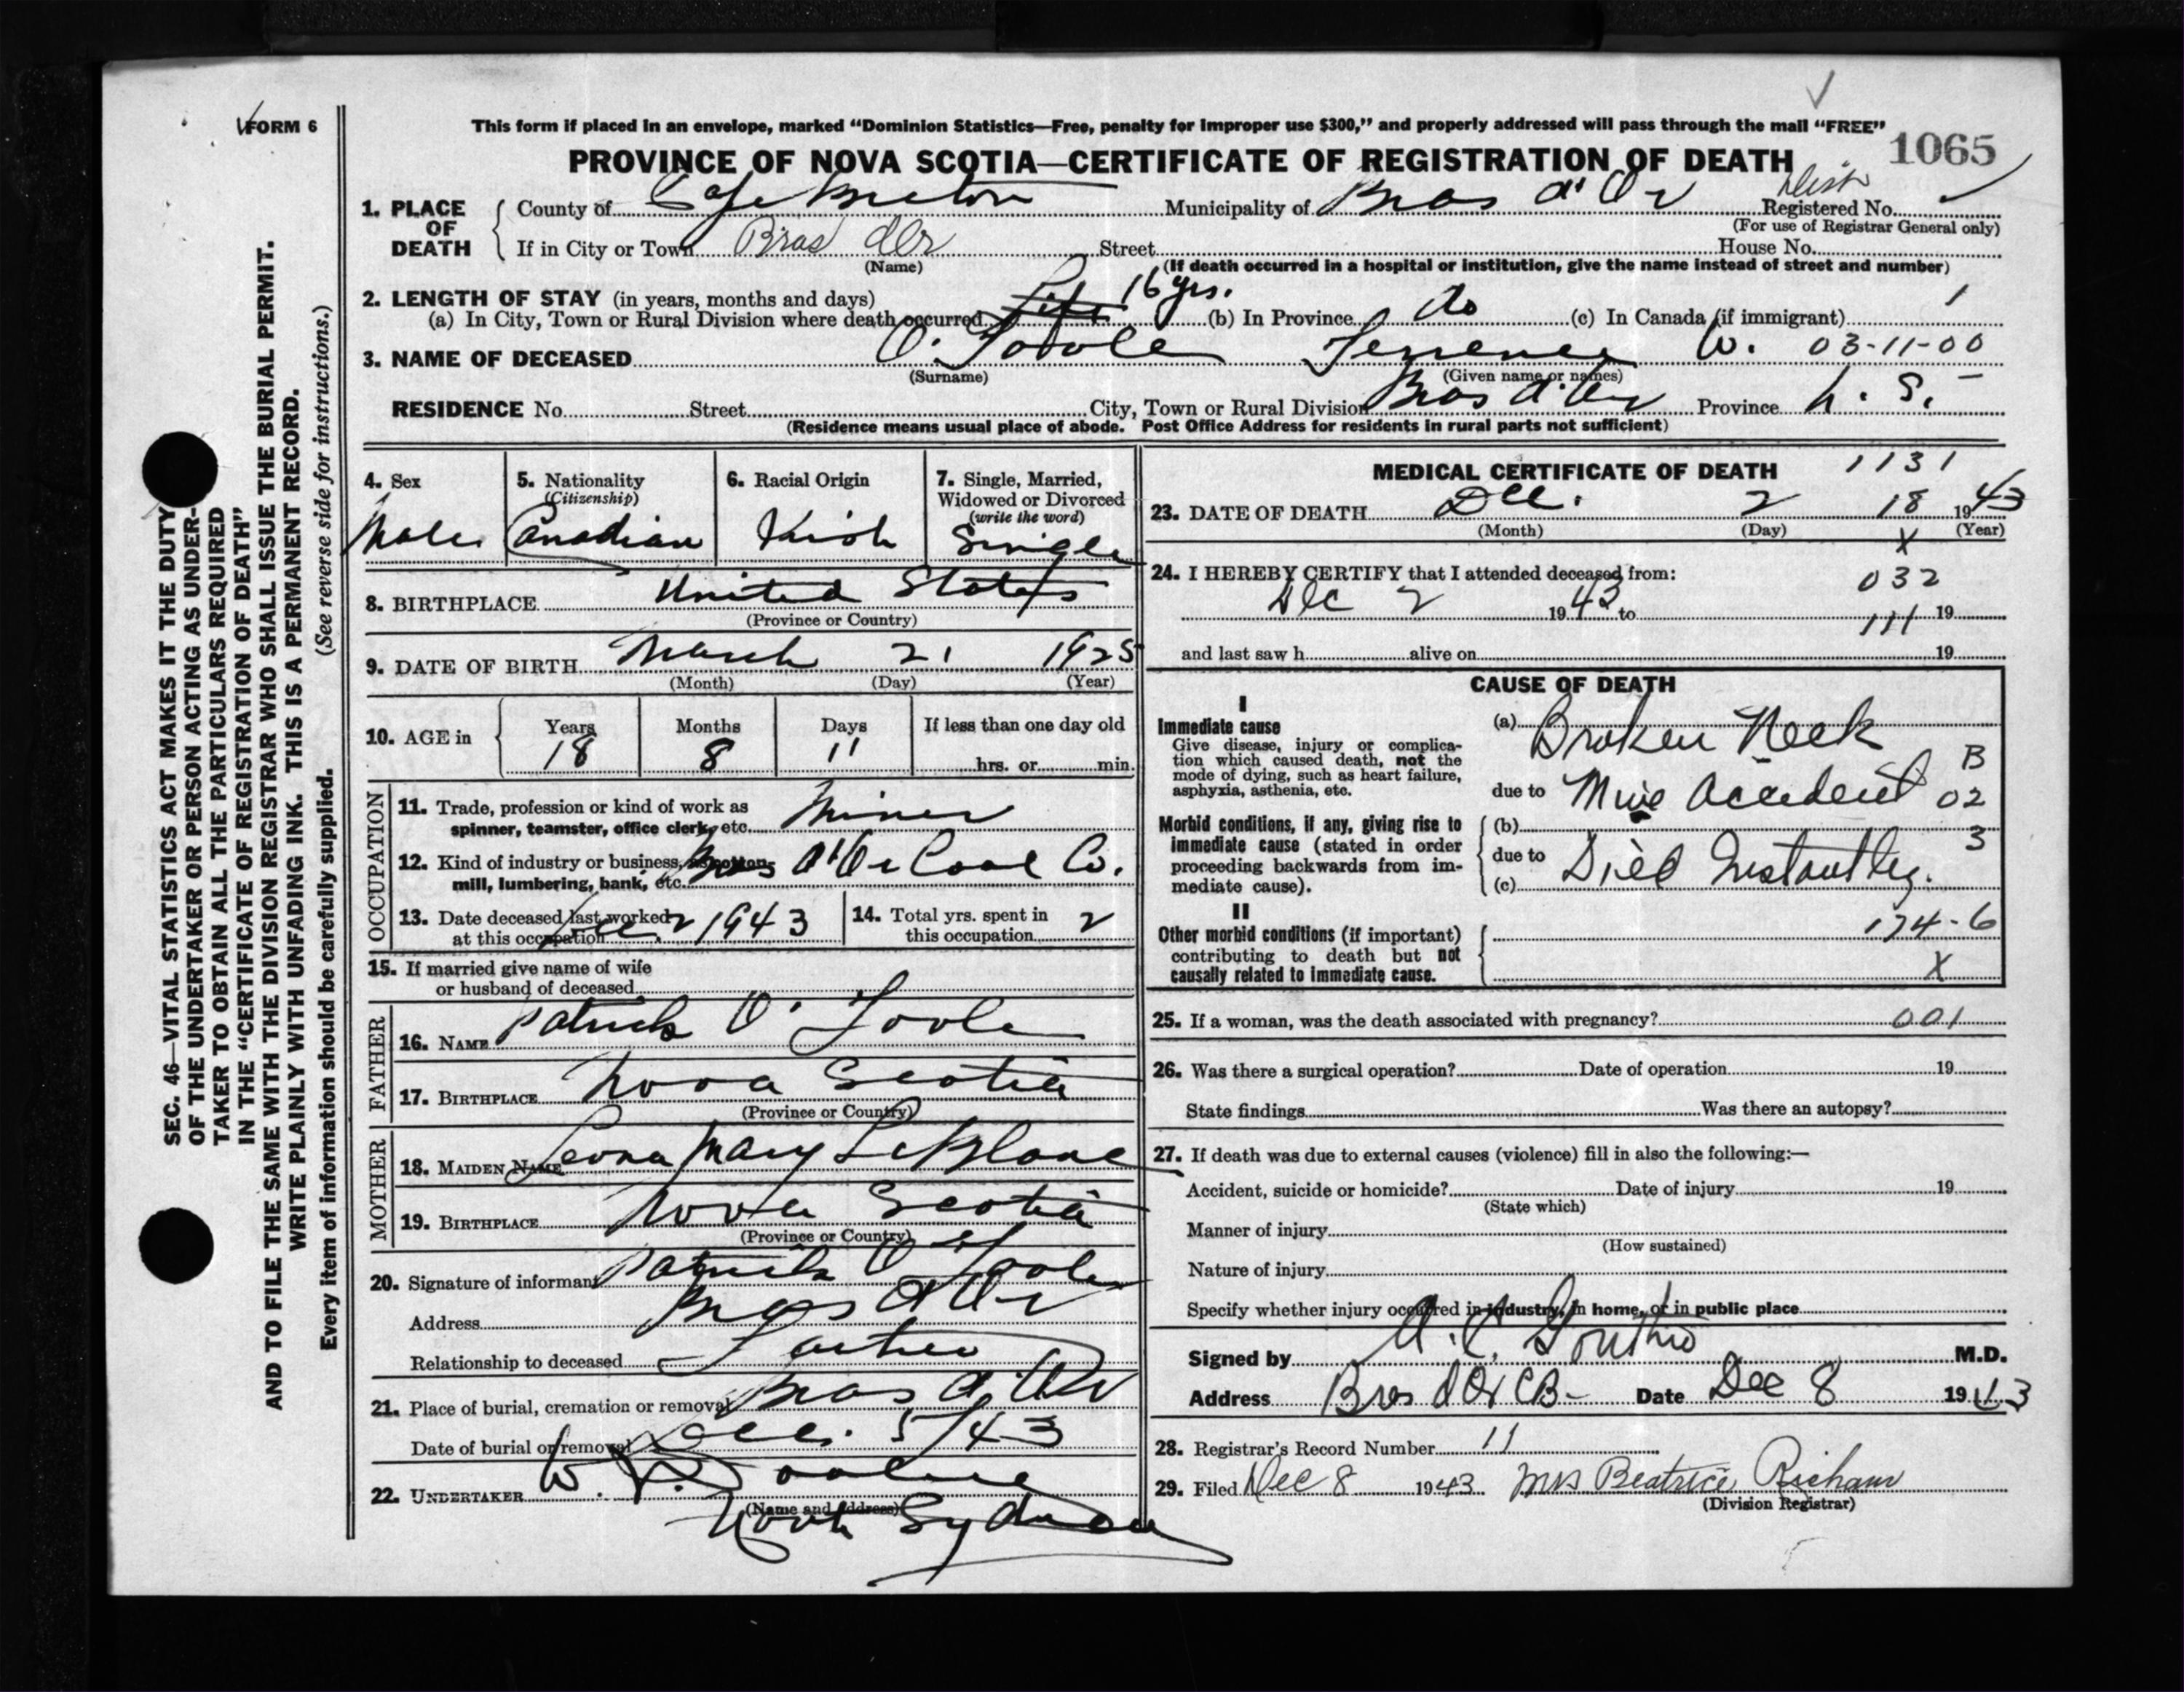 FORM 6
This form if placed in an envelope, marked "Dominion Statistics—Free, penalty for improper use $300," and properly addressed will pass through the mail "FREE"
PROVINCE OF NOVA SCOTIA—CERTIFICATE OF REGISTRATION OF DEATH 1065
1. PLACE OF DEATH
County of Cape Breton Municipality of Bras d'Or Dist Registered No.
(For use of Registrar General only)
If in City or Town Bras d'Or Street House No.
(Name) (If death occurred in a hospital or institution, give the name instead of street and number)
2. LENGTH OF STAY (in years, months and days)
(a) In City, Town or Rural Division where death occurred Life 16 yrs. (b) In Province do (c) In Canada (if immigrant) 1
3. NAME OF DECEASED O'Toole Terrence W. 03-11-00
(Surname) (Given name or names)
RESIDENCE No. Street City, Town or Rural Division Bras d'Or Province N. S.
(Residence means usual place of abode. Post Office Address for residents in rural parts not sufficient)
4. Sex Male
5. Nationality (Citizenship) Canadian
6. Racial Origin Irish
7. Single, Married, Widowed or Divorced (write the word) Single
8. BIRTHPLACE United States
(Province or Country)
9. DATE OF BIRTH March 21 1925
(Month) (Day) (Year)
10. AGE in Years 18 Months 8 Days 11 If less than one day old hrs. or min.
OCCUPATION
11. Trade, profession or kind of work as spinner, teamster, office clerk, etc. Miner
12. Kind of industry or business, as cotton-mill, lumbering, bank, etc. Bras d'Or Coal Co.
13. Date deceased last worked at this occupation Dec. 2 1943
14. Total yrs. spent in this occupation 2
15. If married give name of wife or husband of deceased
FATHER
16. NAME Patrick O'Toole
17. BIRTHPLACE Nova Scotia
(Province or Country)
MOTHER
18. MAIDEN NAME Leona Mary LeBlanc
19. BIRTHPLACE Nova Scotia
(Province or Country)
20. Signature of informant Patrick O'Toole
Address Bras d'Or
Relationship to deceased Father
21. Place of burial, cremation or removal Bras d'Or
Date of burial or removal Dec. 5/43
22. UNDERTAKER W.
(Name and address)
North Sydney
MEDICAL CERTIFICATE OF DEATH 1131
23. DATE OF DEATH Dec. 2 18 1943
(Month) (Day) (Year)
X
24. I HEREBY CERTIFY that I attended deceased from:
032
Dec 2 1943 to 19
111
and last saw h alive on 19
CAUSE OF DEATH
I
Immediate cause
Give disease, injury or complication which caused death, not the mode of dying, such as heart failure, asphyxia, asthenia, etc.
(a) Broken Neck
B
due to Mine Accident 02
Morbid conditions, if any, giving rise to immediate cause (stated in order proceeding backwards from immediate cause).
(b)
3
due to Died Instantly.
(c)
II
Other morbid conditions (if important) contributing to death but not causally related to immediate cause.
174-6
X
25. If a woman, was the death associated with pregnancy? 001
26. Was there a surgical operation? Date of operation 19
State findings Was there an autopsy?
27. If death was due to external causes (violence) fill in also the following:—
Accident, suicide or homicide? Date of injury 19
(State which)
Manner of injury
(How sustained)
Nature of injury
Specify whether injury occurred in industry, in home, or in public place
Signed by A. C. M.D.
Address Bras d'Or CB- Date Dec 8 1943
28. Registrar's Record Number 11
29. Filed Dec 8 1943 Mrs Beatrice
(Division Registrar)
SEC. 46—VITAL STATISTICS ACT MAKES IT THE DUTY
OF THE UNDERTAKER OR PERSON ACTING AS UNDER-
TAKER TO OBTAIN ALL THE PARTICULARS REQUIRED
IN THE "CERTIFICATE OF REGISTRATION OF DEATH"
AND TO FILE THE SAME WITH THE DIVISION REGISTRAR WHO SHALL ISSUE THE BURIAL PERMIT.
WRITE PLAINLY WITH UNFADING INK. THIS IS A PERMANENT RECORD.
Every item of information should be carefully supplied. (See reverse side for instructions.)